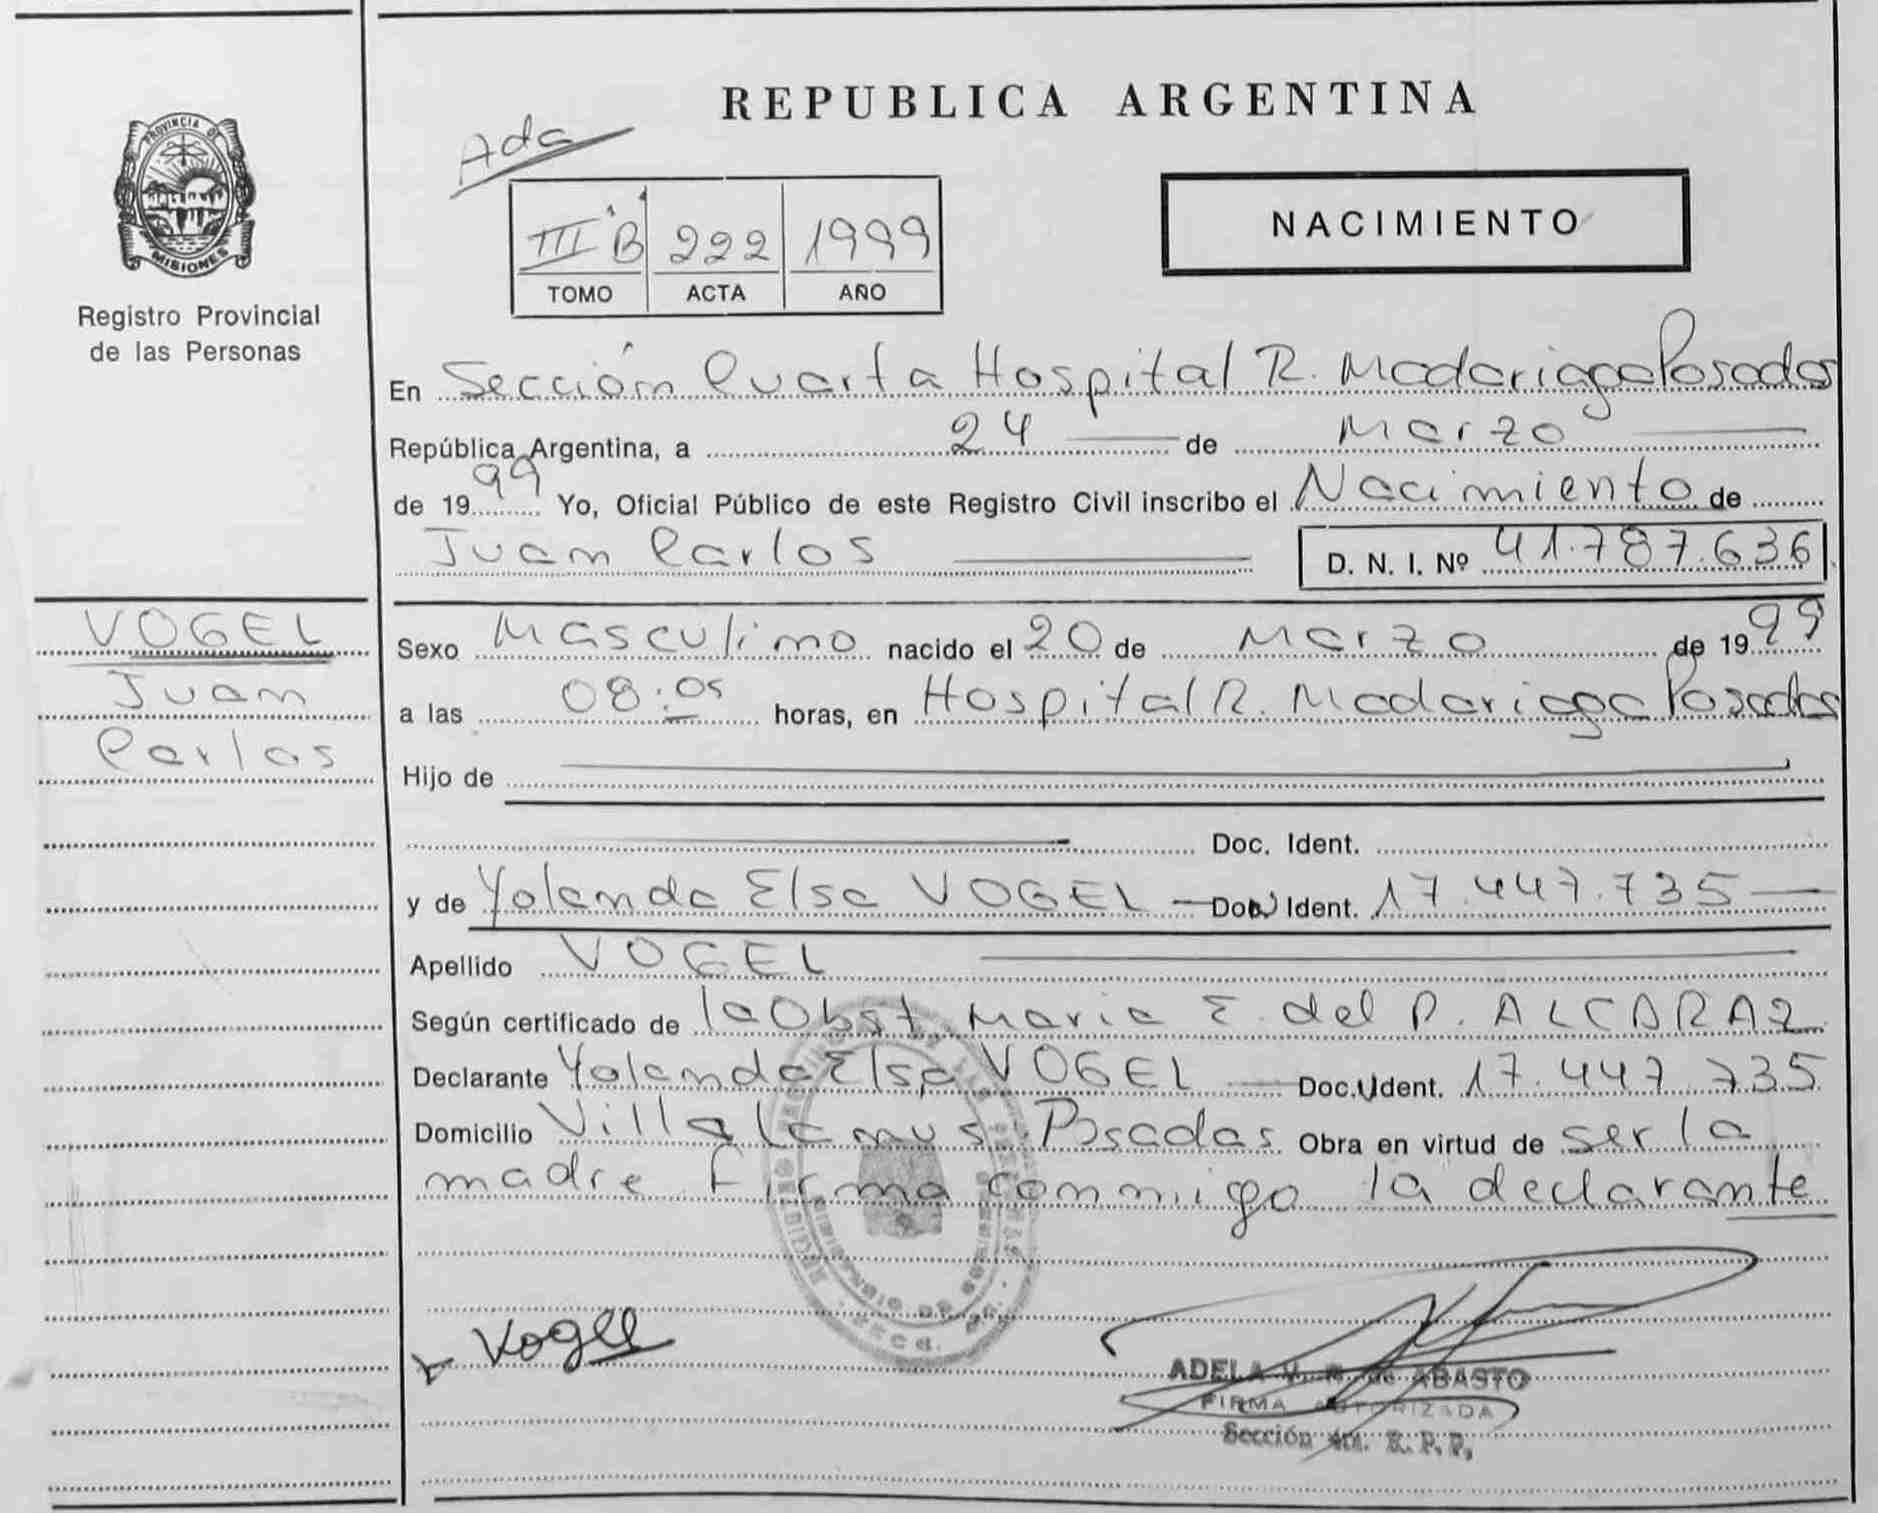 REPUBLICA ARGENTINA
Ada
PROVINCIA DE
MISIONES
Registro Provincial
de las Personas
III "B" 222 1999
TOMO ACTA AÑO
NACIMIENTO
En Sección Cuarta Hospital R. Madariaga Posadas
República Argentina, a 24 de Marzo
de 1999 Yo, Oficial Público de este Registro Civil inscribo el Nacimiento de
Juan Carlos D. N. I. Nº 41.787.636
VOGEL
Juan
Carlos
Sexo Masculino nacido el 20 de Marzo de 1999
a las 08:05 horas, en Hospital R. Madariaga Posadas
Hijo de
Doc. Ident.
y de Yolanda Elsa VOGEL Doc. Ident. 17.447.735
Apellido VOGEL
Según certificado de la Obst. Maria E. del P. ALCARAZ
Declarante Yolanda Elsa VOGEL Doc. Ident. 17.447.735
Domicilio Villa Lanus Posadas Obra en virtud de ser la
madre firma conmigo la declarante
Vogel
ADELA V. R. de ABASTO
FIRMA AUTORIZADA
Sección 4ta. R. P. P.